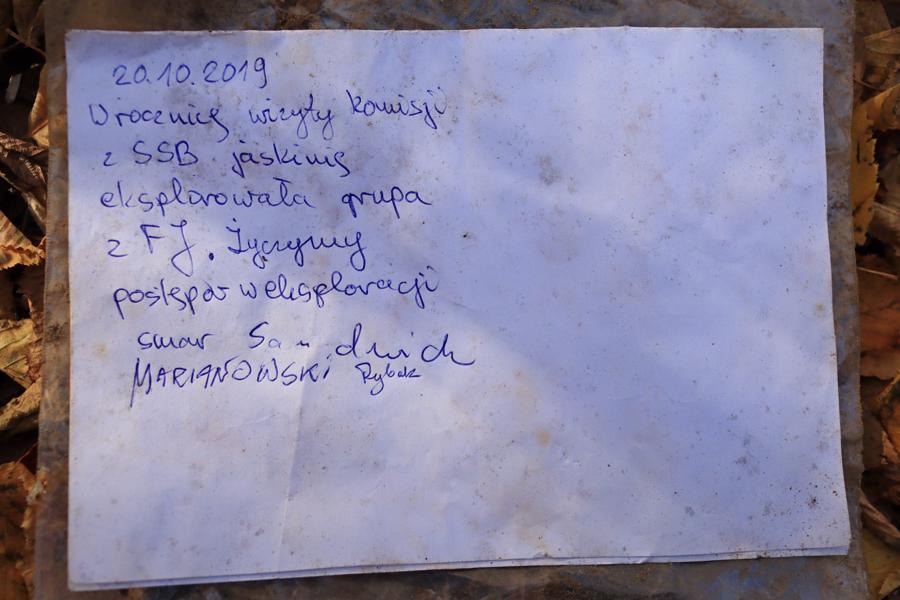 20.10.2019
W rocznicę wizyty komisji
z SSB jaskinię
eksplorowała grupa
z FJ. Życzymy
postępów w eksploracji
smar Sandwich
MARIANOWSKI Rybak